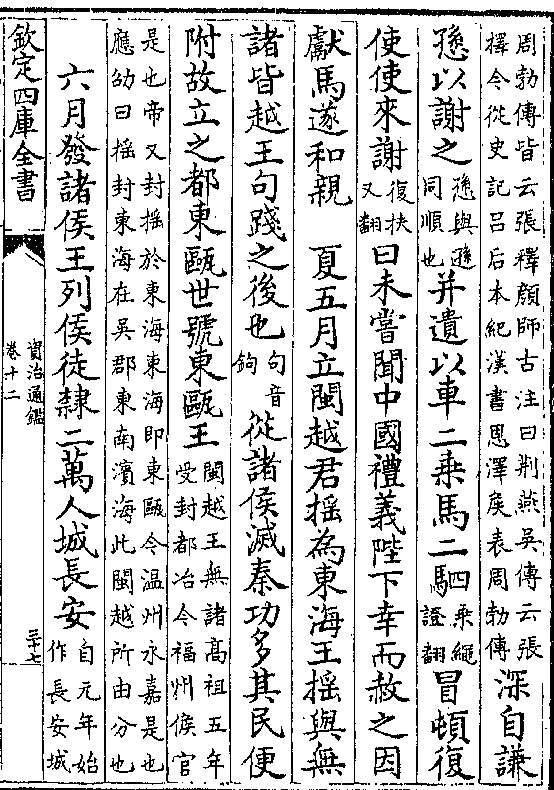 周勃傳皆云張釋顏師古注曰荆燕吳傳云張
擇今從史記吕后本紀漢書恩澤侯表周勃傳
深自謙
愻以謝之
愻與遜
同順也
并遺以車二乗馬二駟
乗繩
證翻
冒頓復
使使來謝
復扶
又翻
曰未嘗聞中國禮義陛下幸而赦之因
獻馬遂和親 夏五月立閩越君揺為東海王揺與無
諸皆越王句踐之後也
句音
鉤
從諸侯滅秦功多其民便
附故立之都東甌世號東甌王
閩越王無諸髙祖五年
受封都冶今福州侯官
是也帝又封揺於東海東海即東甌今温州永嘉是也
應劭曰揺封東海在吳郡東南濱海此閩越所由分也
六月發諸侯王列侯徒隷二萬人城長安
自元年始
作長安城
欽定四庫全書
資治通鑑
卷十二
三十七